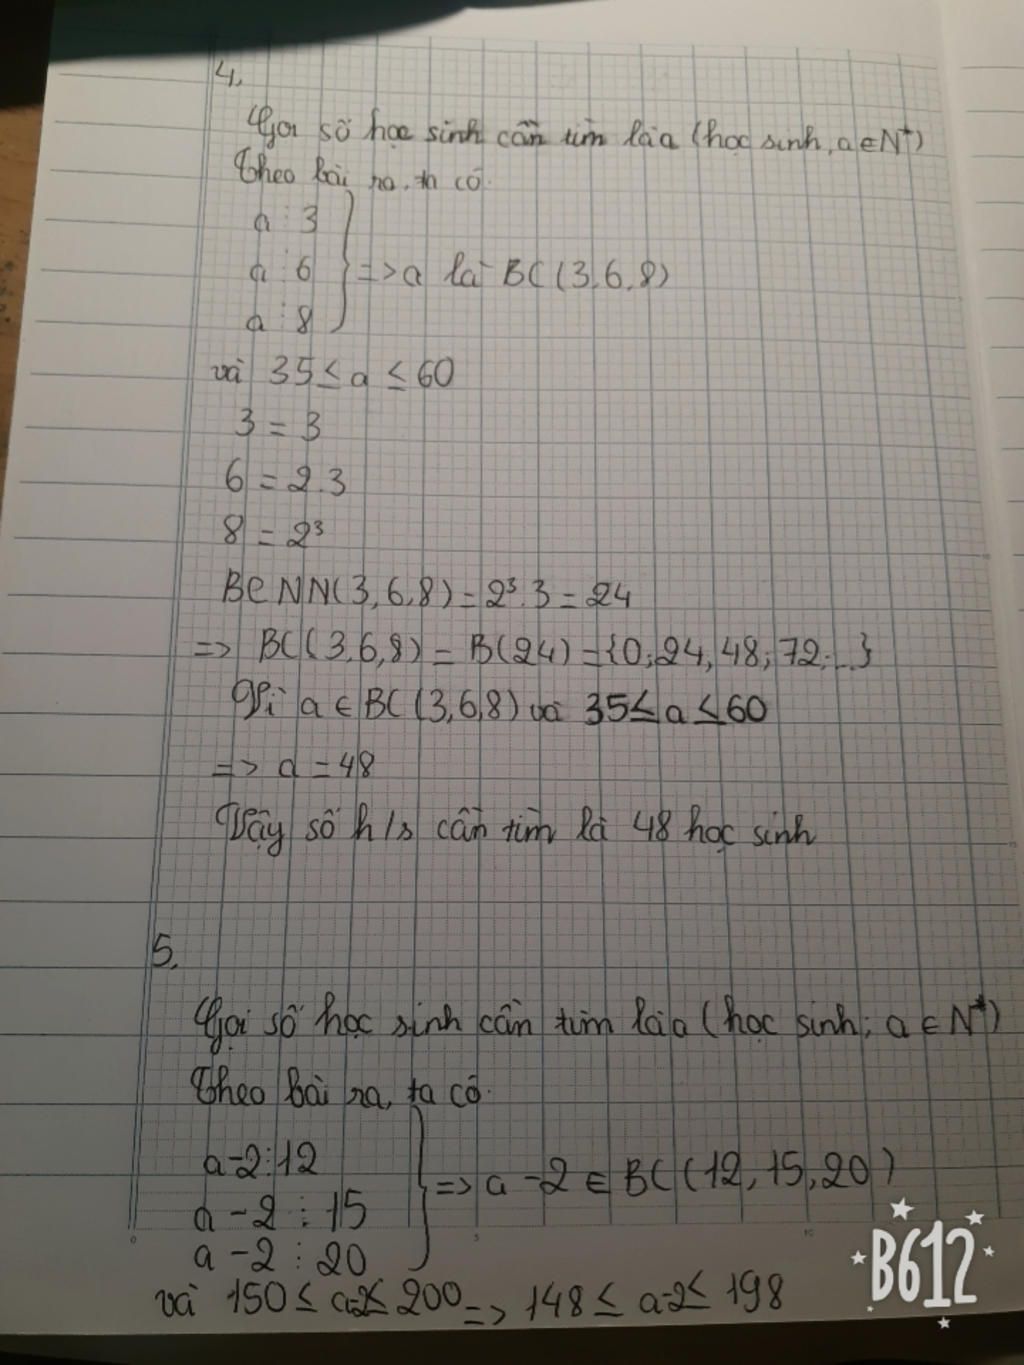 4.
Gọi số học sinh cần tìm là a (học sinh, a ∈ N*)
Theo bài ra, ta có.
a ⋮ 3
a ⋮ 6 } => a là BC(3,6,8)
a ⋮ 8
và 35 ≤ a ≤ 60
3 = 3
6 = 2.3
8 = 2³
BCNN(3,6,8) = 2³.3 = 24
=> BC(3,6,8) = B(24) = {0; 24, 48; 72; ...}
Vì a ∈ BC(3,6,8) và 35 ≤ a ≤ 60
=> a = 48
Vậy số h/s cần tìm là 48 học sinh
5.
Gọi số học sinh cần tìm là a (học sinh; a ∈ N*)
Theo bài ra, ta có.
a-2 ⋮ 12
a-2 ⋮ 15 } => a-2 ∈ BC(12,15,20)
a-2 ⋮ 20
và 150 ≤ a-2 ≤ 200 => 148 ≤ a-2 ≤ 198
B612